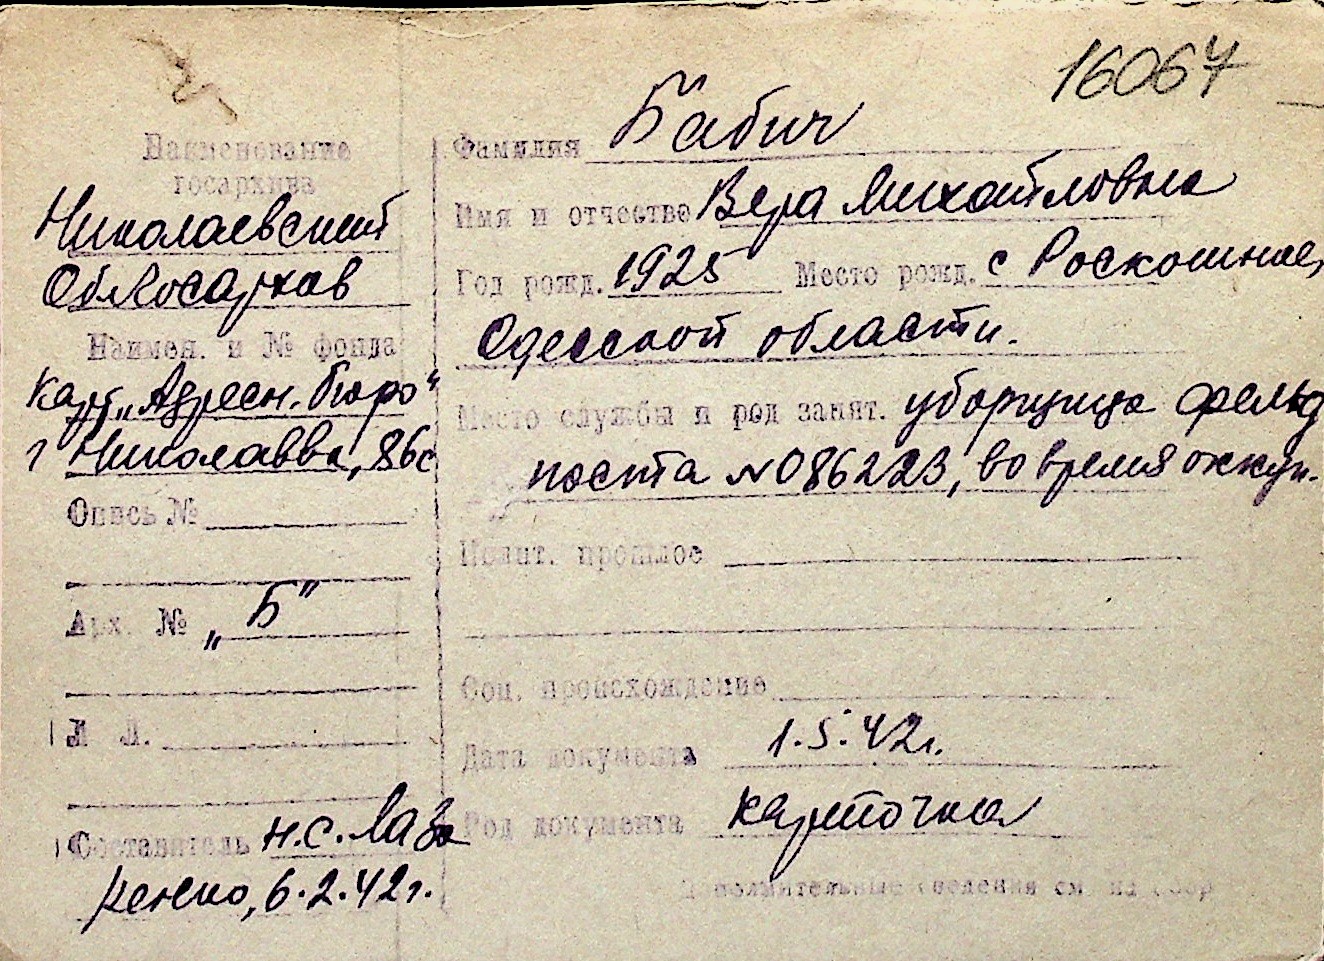 16067
Наименование
госархива
Николаевский
Облгосархив
Наимен. и № фонда
Карт „Адресн. бюро"
г Николаева, 86с
Опись №
Арх. № „Б"
Л Л.
Составитель Н.С. Лаза
ренко, 6.2.42г.
Фамилия Бабич
Имя и отчество Вера Михайловна
Год рожд. 1925 Место рожд. с Роскошное,
Одесской области.
Место службы и род занят. уборщица фельд
поста №086223, во время оккуп.
Полит. прошлое
Соц. происхождение
Дата документа 1.5.42г.
Род документа карточка
Дополнительные сведения см. на обор